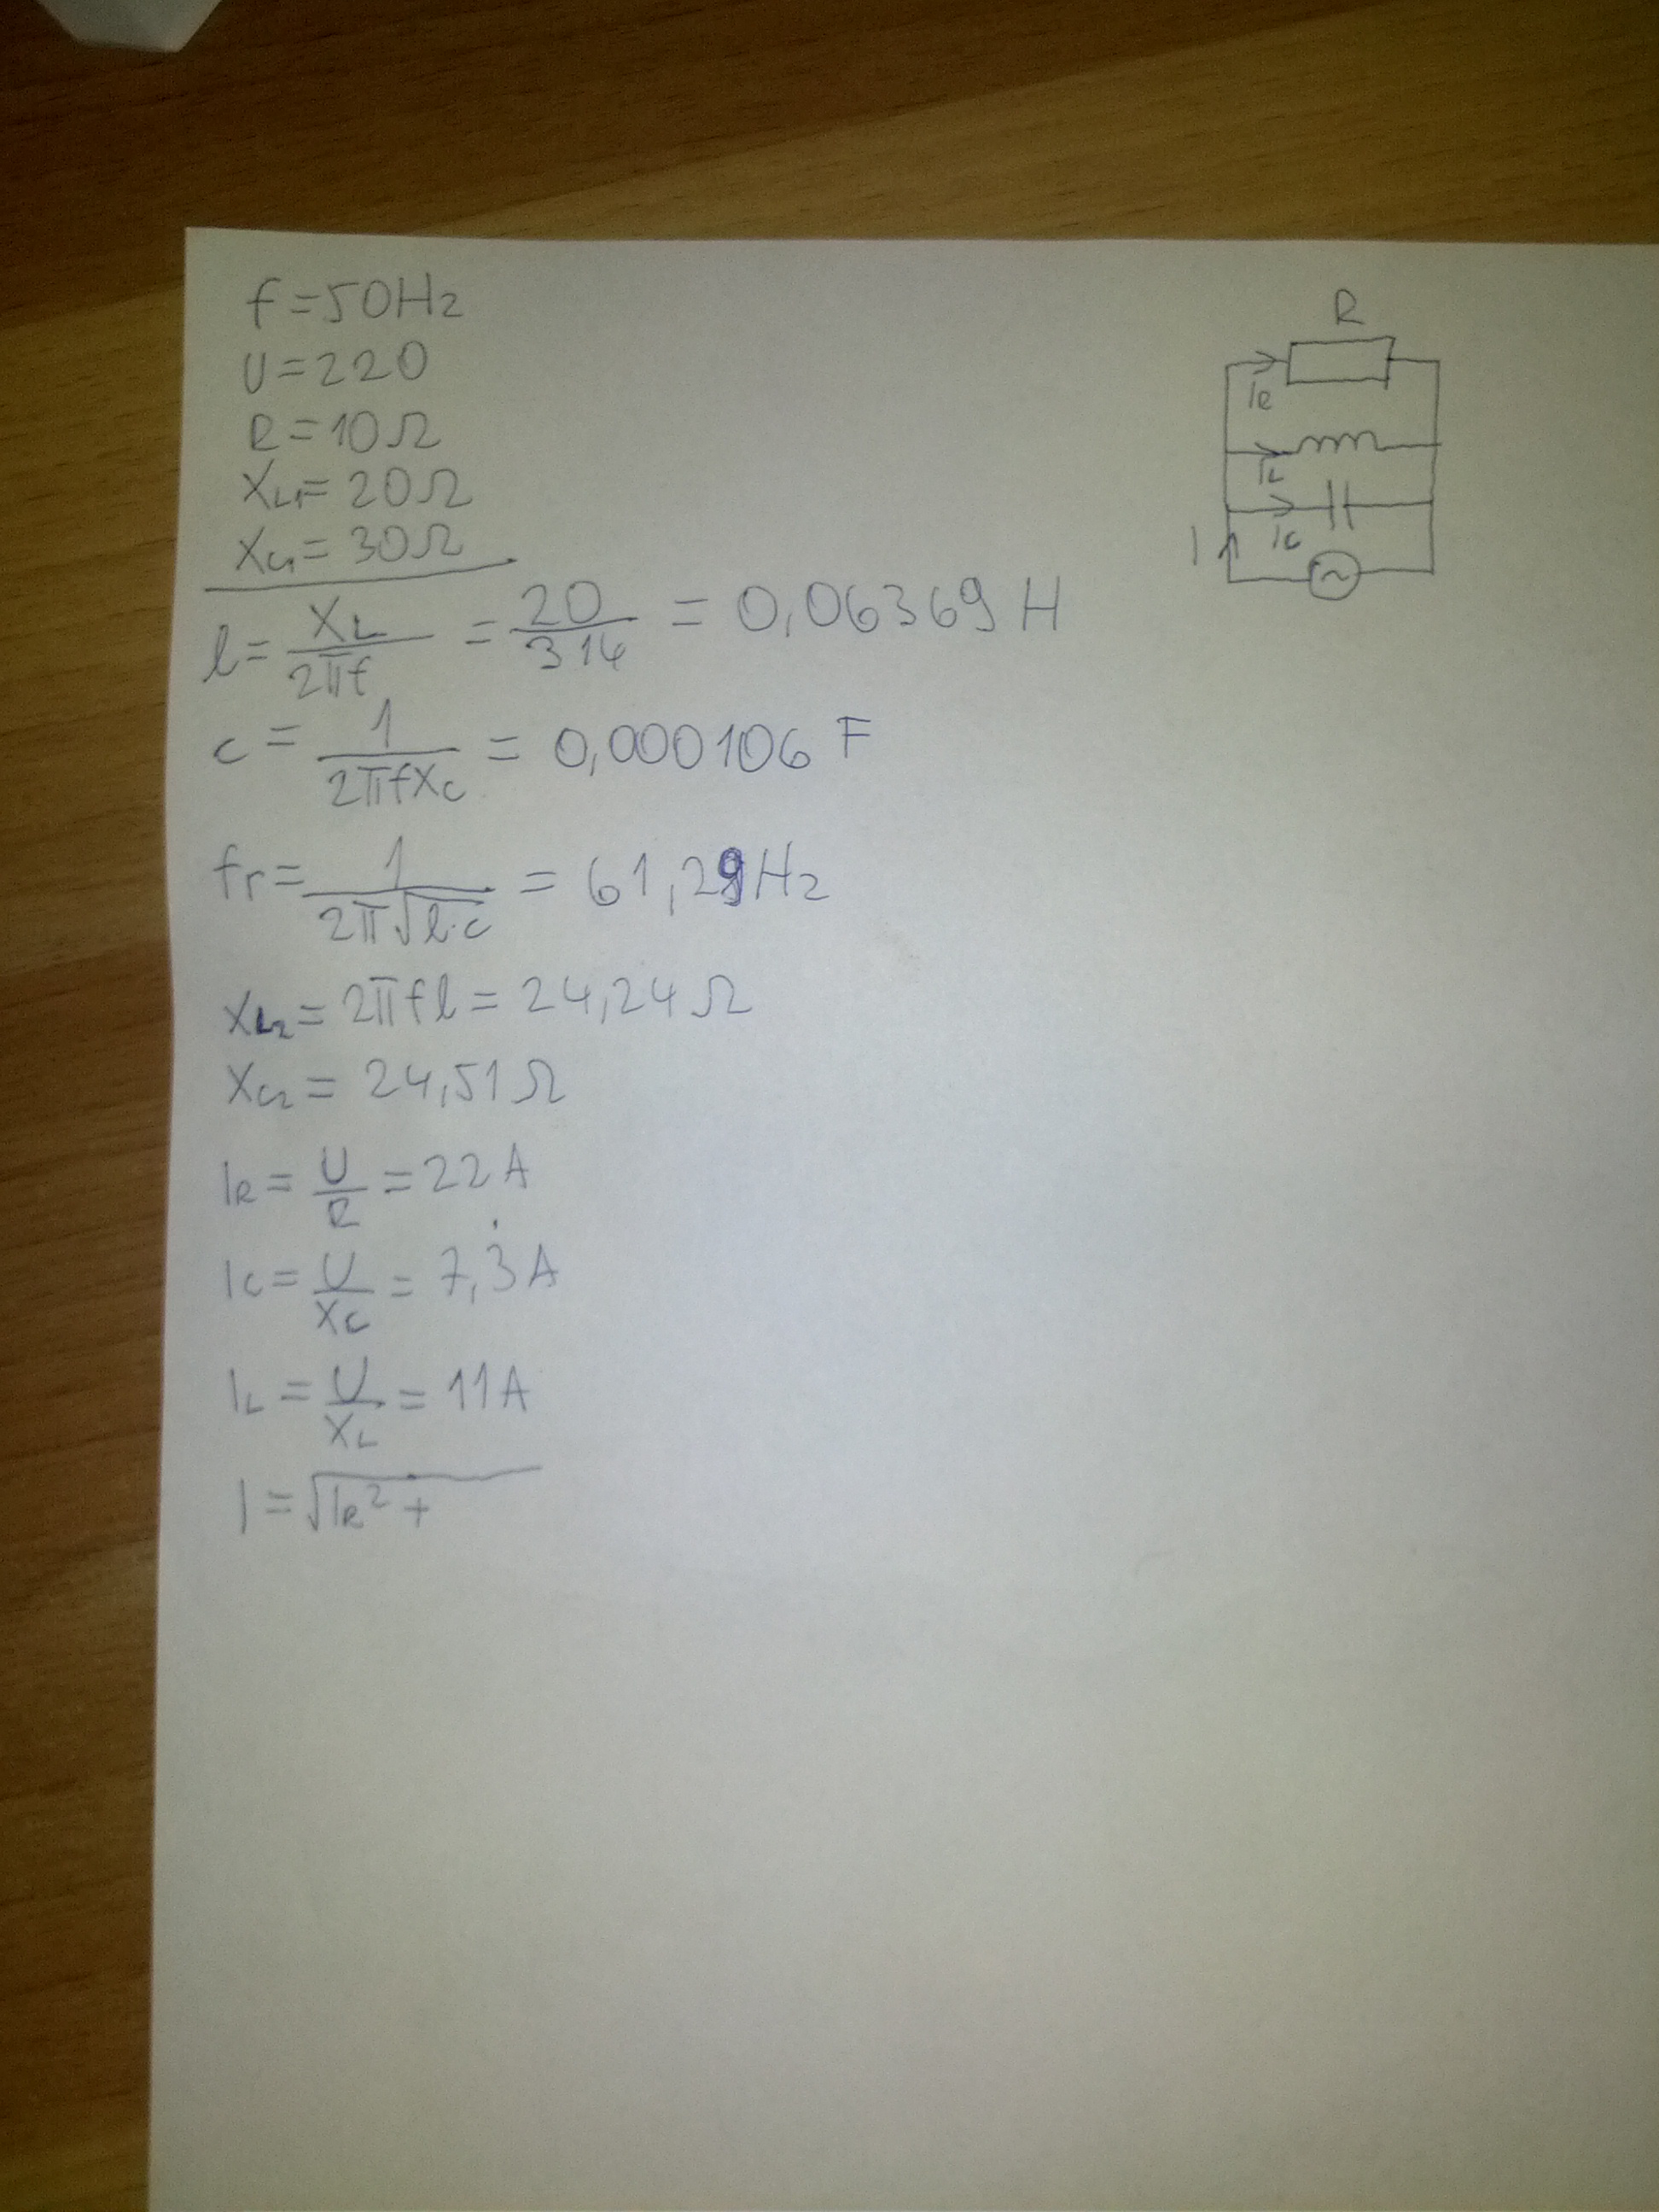 f=50Hz
U=220
R=10Ω
XL1=20Ω
XC1=30Ω
l=XL/2πf=20/314=0,06369H
c=1/2πfXc=0,000106F
fr=1/2π√l·c=61,29Hz
XL2=2πfl=24,24Ω
XC2=24,51Ω
IR=U/R=22A
IC=U/XC=7,3̇A
IL=U/XL=11A
I=√IR²+
R
IR
IL
IC
I
~